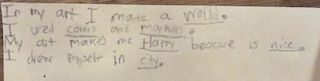 In my art I made a world.
I used cours and markers.
My art makes me Happy because is nice.
I drew myself in city.